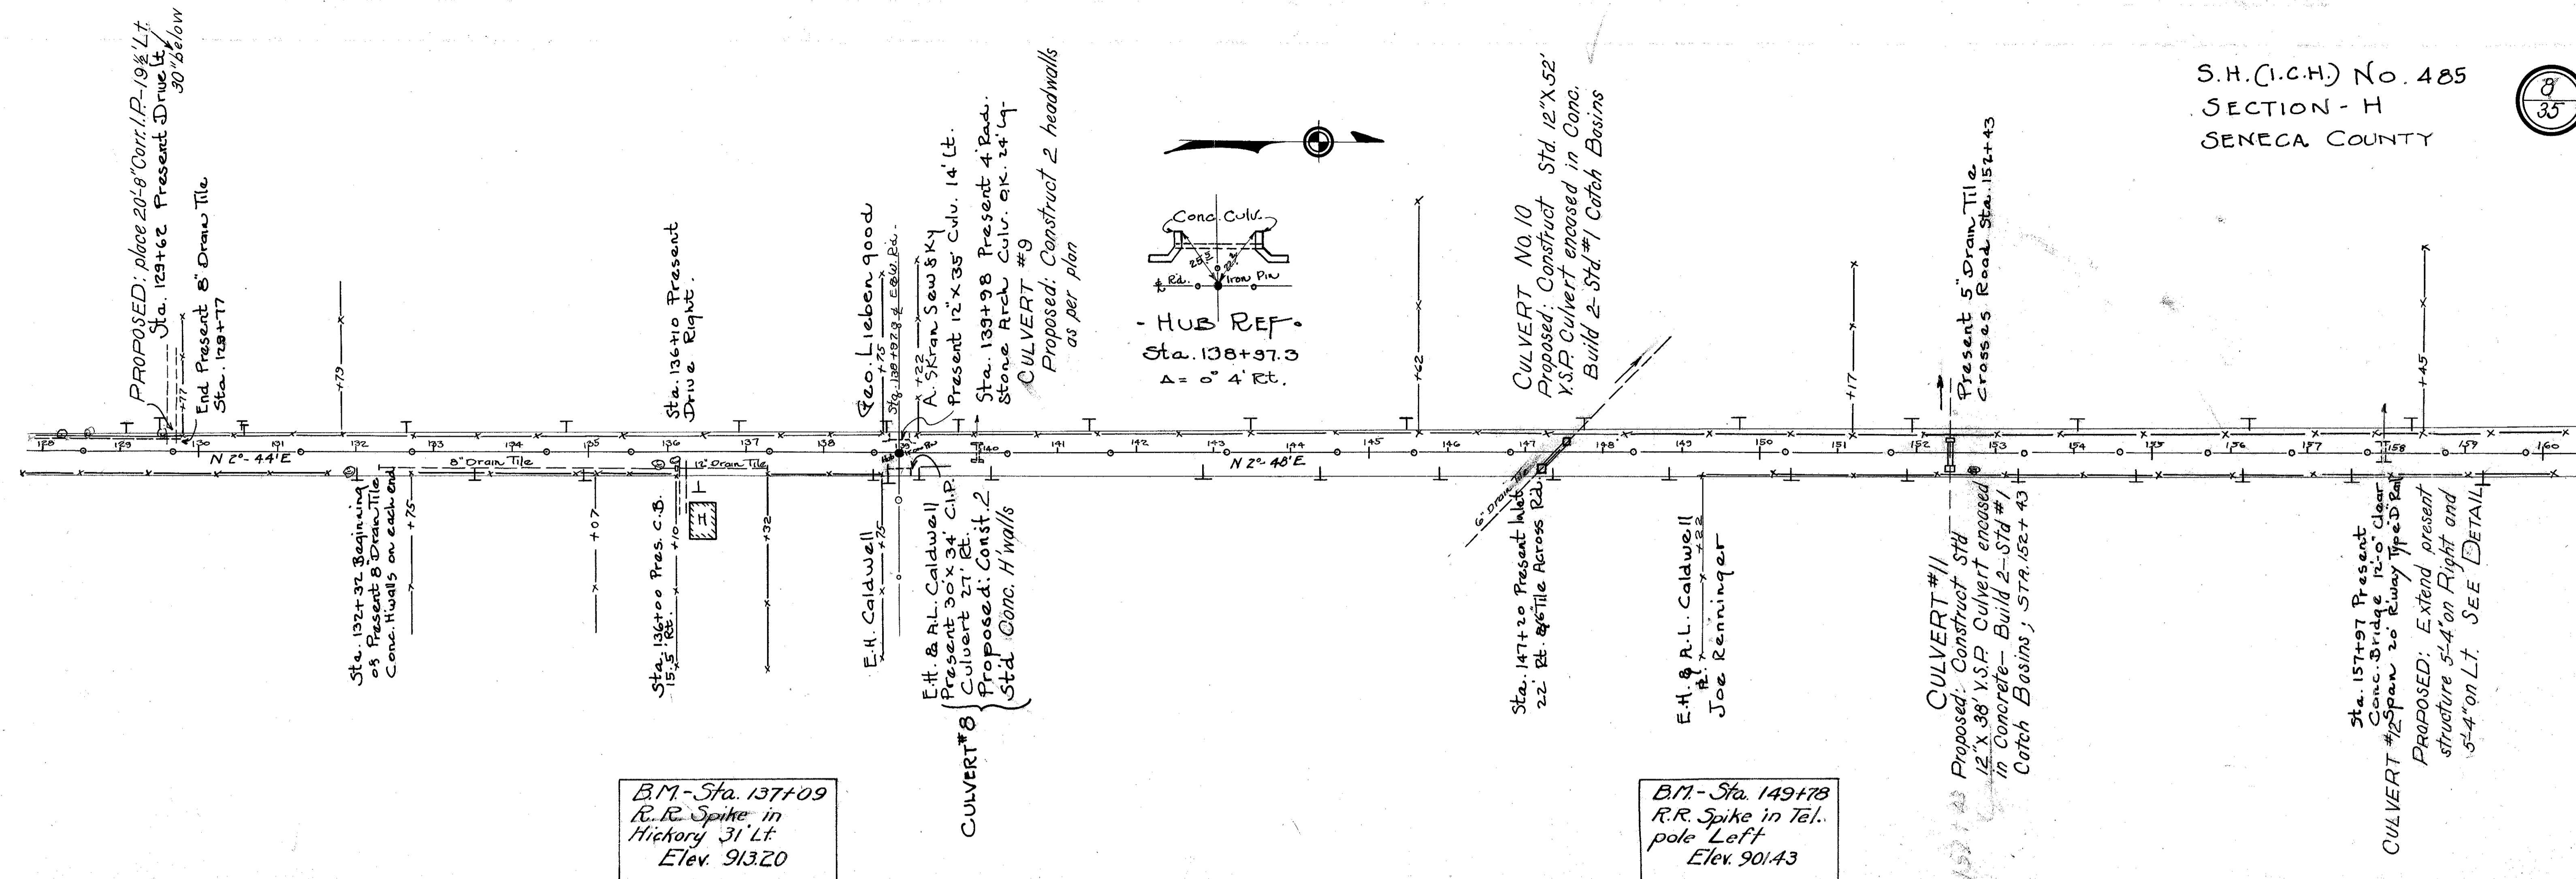 S.H.(I.C.H.) No. 485
SECTION - H
SENECA COUNTY
8
35
PROPOSED: place 20'-8" Corr. I.P.-19½' Lt.
30" below
Sta. 129+62 Present Drive Lt.
+77
End Present 8" Drain Tile
Sta. 129+77
+79
Sta. 136+10 Present
Drive Right.
Geo. Liebengood
+75
Sta. 138+97.3 ⅊ E&W. Rd.
+22
A. Skransewsky
Present 12" x 35' Culv. 14' Lt.
Sta. 139+98 Present 4' Rad.
Stone Arch Culv. O.K. 24' Lg.
CULVERT #9
Proposed: Construct 2 headwalls
as per plan
Conc. Culv.
Rd.
Iron Pin
- HUB REF.
Sta. 138+97.3
Δ = 0° 4' Rt.
+62
CULVERT NO. 10
Proposed: Construct Std. 12"X52'
V.S.P. Culvert encased in Conc.
Build 2-Std. #1 Catch Basins
+17
Present 5" Drain Tile
Crosses Road Sta. 152+43
+45
128 129 130 131 132 133 134 135 136 137 138 139 140 141 142 143 144 145 146 147 148 149 150 151 152 153 154 155 156 157 158 159 160
N 2°-44' E
8" Drain Tile
12" Drain Tile
N 2°-48' E
6" Drain Tile
Sta. 132+32 Beginning
of Present 8" Drain Tile
Conc. H'walls on each end
+75
+07
Sta. 136+00 Pres. C.B.
15.5' Rt.
+10
H
+32
E.H. Caldwell
+75
E.H. & A.L. Caldwell
Present 30" x 34' C.I.P.
Culvert 27' Rt.
Proposed: Const. 2
Std Conc. H'walls
CULVERT #8
Sta. 147+20 Present Inlet
22' Rt. & 6" Tile Across Rd.
E.H. & A.L. Caldwell
+22
Joe Renninger
CULVERT #11
Proposed: Construct Std
12" x 38' V.S.P. Culvert encased
in Concrete- Build 2-Std #1
Catch Basins; STA. 152+43
Sta. 157+97 Present
Conc. Bridge 12'-0" Clear
Span 20' R'way Type D Rail
CULVERT #12
PROPOSED: Extend present
structure 5'-4" on Right and
5'-4" on Lt. SEE DETAIL
B.M.-Sta. 137+09
R.R. Spike in
Hickory 31' Lt.
Elev. 913.20
B.M.- Sta. 149+78
R.R. Spike in Tel.
pole Left
Elev. 901.43